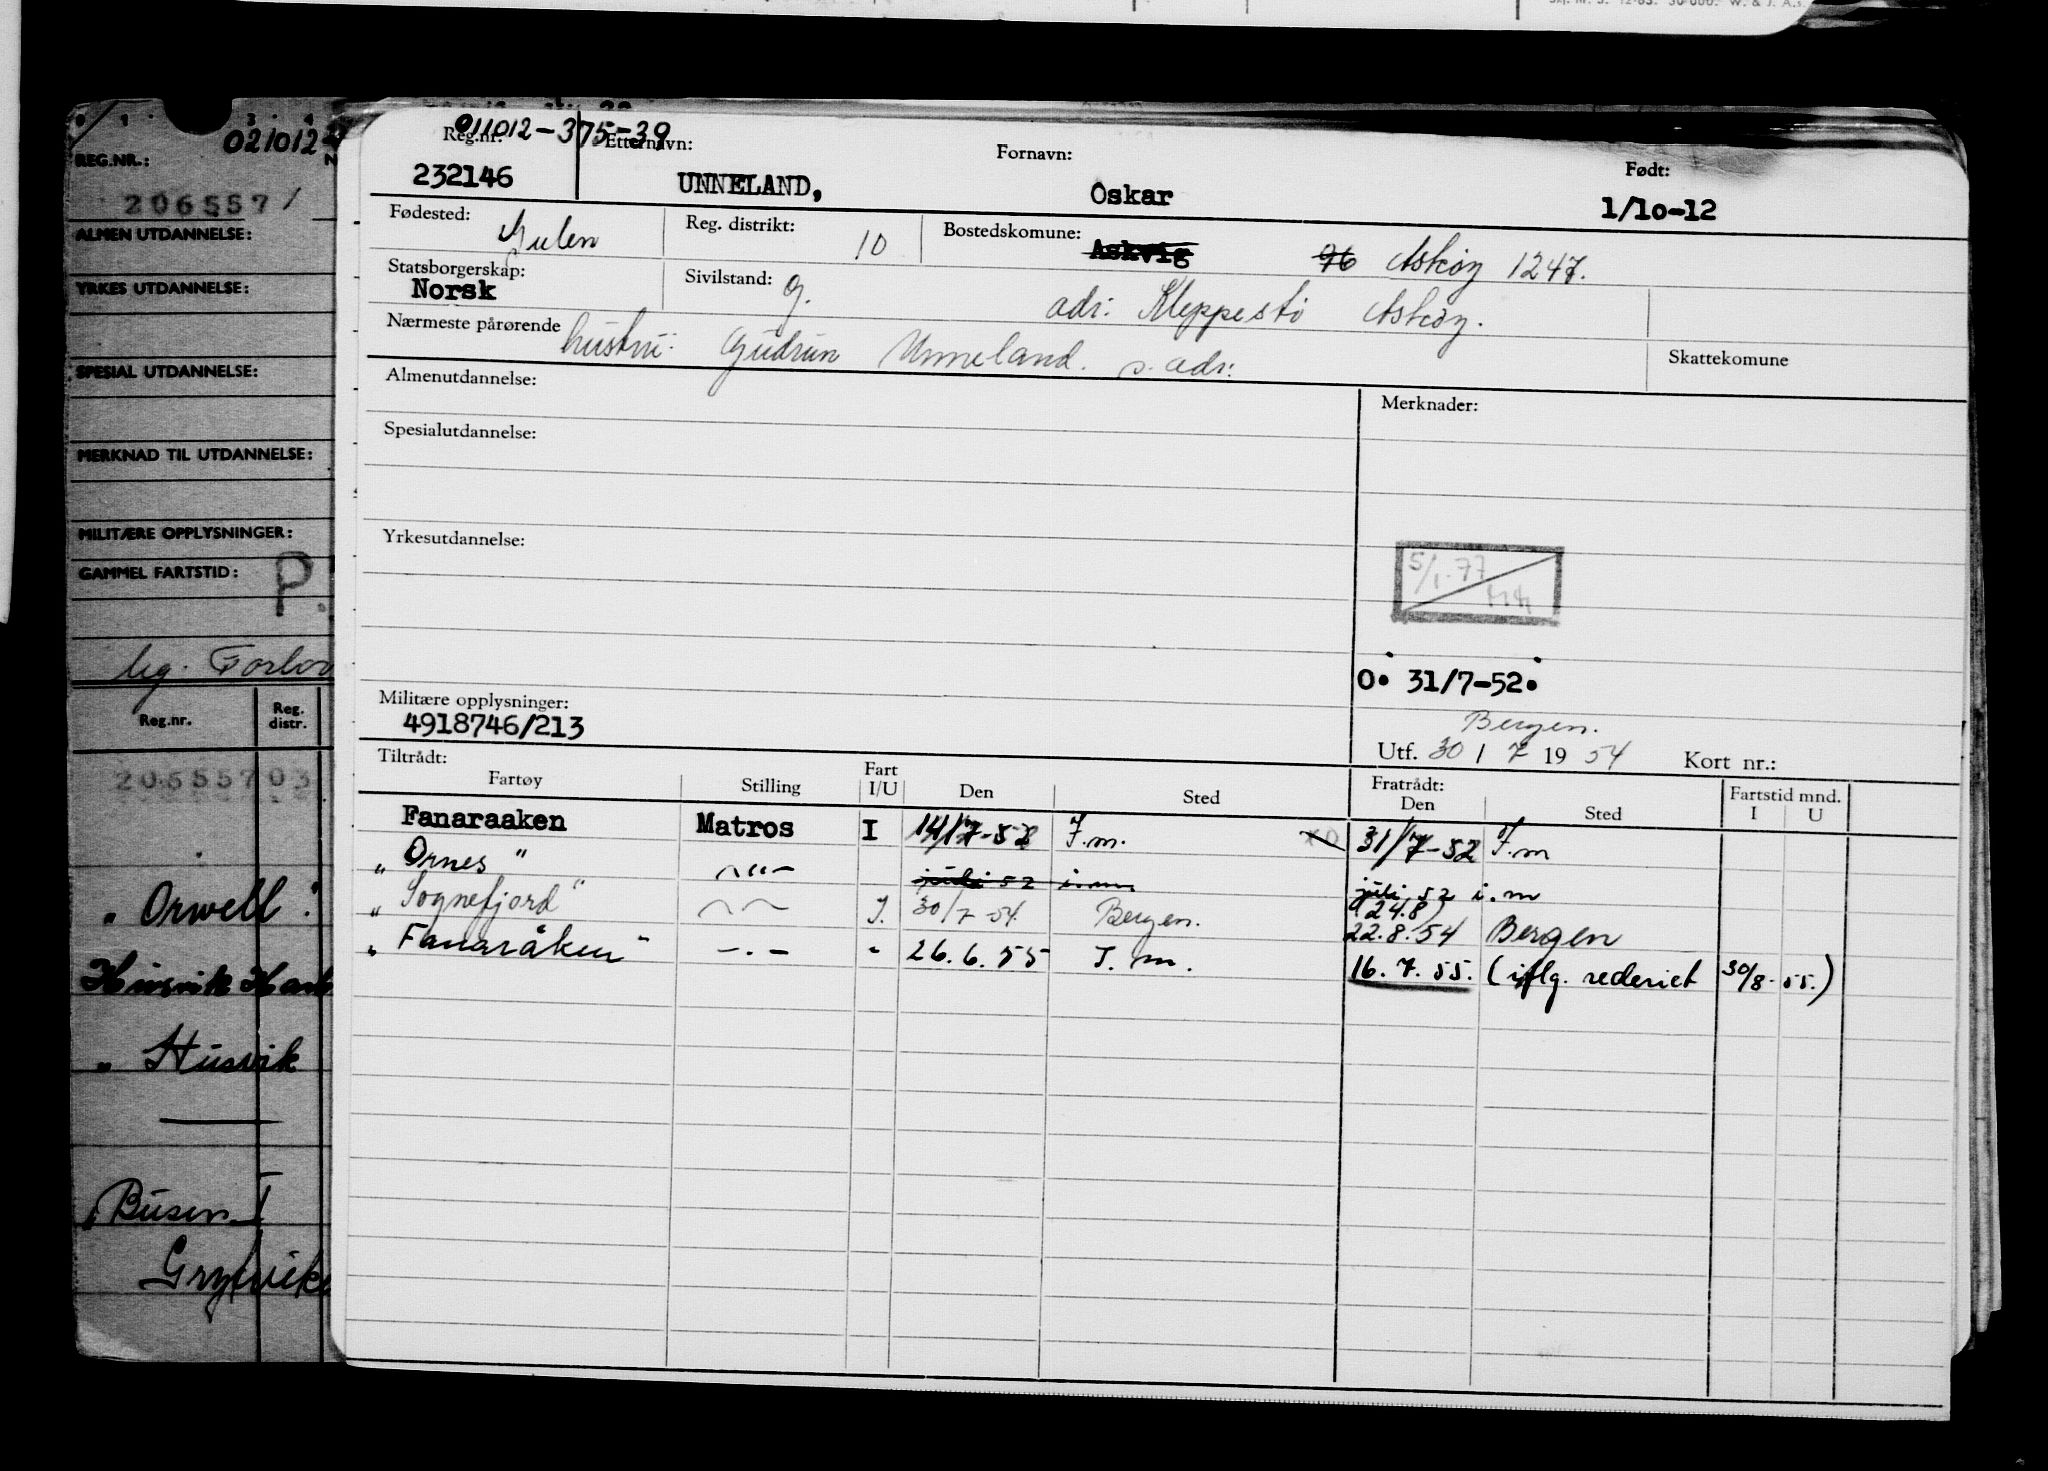 Skj. Nr. 5. 12-63. 30 000. W. & J. A.s.
021012
REG.NR.:
206557/
ALMEN UTDANNELSE:
YRKES UTDANNELSE:
SPESIAL UTDANNELSE:
MERKNAD TIL UTDANNELSE:
MILITÆRE OPPLYSNINGER:
GAMMEL FARTSTID:
P.
Reg.nr. Reg. distr.
206557 03
"Orwell"
" Husvik
"Busen I
011012-375-39
Reg.nr. Etternavn: Fornavn: Født:
232146 UNNELAND, Oskar 1/10-12
Fødested: Gulen Reg. distrikt: 10 Bostedskomune: Askvig 96 Askøy 1247.
Statsborgerskap: Norsk Sivilstand: g. adr: Kleppestø Askøy.
Nærmeste pårørende hustru: Gudrun Unneland. s. adr: Skattekomune
Almenutdannelse: Merknader:
Spesialutdannelse:
Yrkesutdannelse:
5/1-77
O. 31/7-52.
Militære opplysninger:
4918746/213
Bergen.
Utf. 30 / 7 19 54 Kort nr.:
Tiltrådt: Fratrådt:
Fartøy Stilling Fart I/U Den Sted Den Sted Fartstid mnd. I U
Fanaraaken Matros I 14/7-52 I.m. 31/7-52 I.m
"Ornes" -"- juli 52 i.m juli 52 i.m
"Sognefjord" I. 30/7-54 Bergen. (24.8) 22.8.54 Bergen
"Fanaråken" -.- " 26.6.55 I.m. 16.7.55. (iflg. rederiet 30/8-55.)